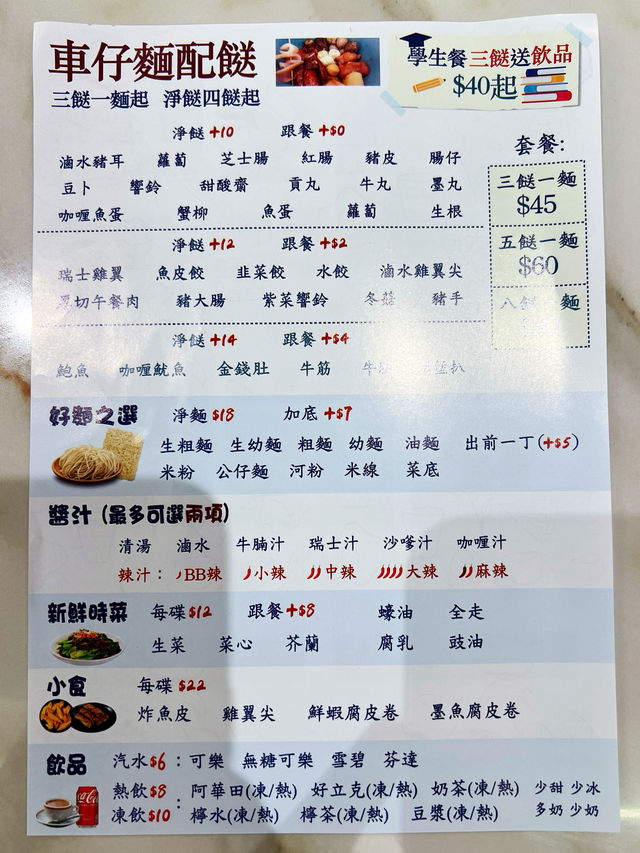 車仔麵配餸
三餸一麵起 淨餸四餸起
學生餐 三餸送飲品
$40起
淨餸 +10 跟餐 +$0
滷水豬耳 蘿蔔 芝士腸 紅腸 豬皮 腸仔
豆卜 響鈴 甜酸齋 貢丸 牛丸 墨丸
咖喱魚蛋 蟹柳 魚蛋 蘿蔔 生根
套餐:
三餸一麵
$45
五餸一麵
$60
八餸一麵
淨餸 +12 跟餐 +$2
瑞士雞翼 魚皮餃 韭菜餃 水餃 滷水雞翼尖
切午餐肉 豬大腸 紫菜響鈴 冬菇 豬手
淨餸 +14 跟餐 +$4
鮑魚 咖喱魷魚 金錢肚 牛筋
好麵之選 淨麵 $18 加底 +$7
生粗麵 生幼麵 粗麵 幼麵 油麵 出前一丁(+$5)
米粉 公仔麵 河粉 米線 菜底
醬汁 (最多可選兩項)
清湯 滷水 牛腩汁 瑞士汁 沙嗲汁 咖喱汁
辣汁： BB辣 小辣 中辣 大辣 麻辣
新鮮時菜 每碟 $12 跟餐 +$8 蠔油 全走
生菜 菜心 芥蘭 腐乳 豉油
小食 每碟 $22
炸魚皮 雞翼尖 鮮蝦腐皮卷 墨魚腐皮卷
飲品 汽水 $6 : 可樂 無糖可樂 雪碧 芬達
熱飲 $8 : 阿華田(凍/熱) 好立克(凍/熱) 奶茶(凍/熱) 少甜 少冰
凍飲 $10 檸水(凍/熱) 檸茶(凍/熱) 豆漿(凍/熱) 多奶 少奶